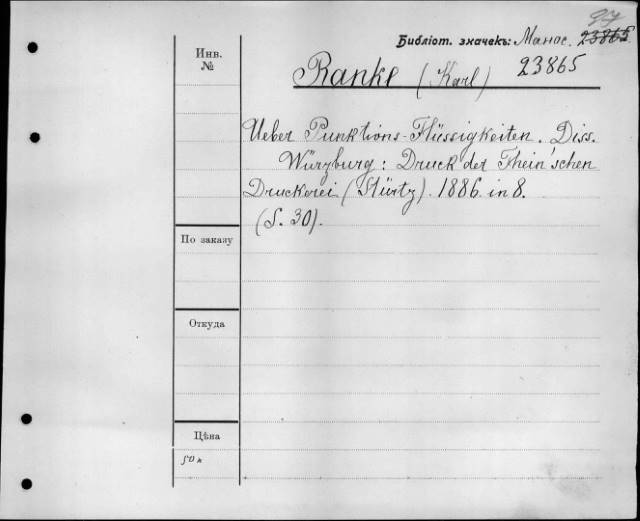 27
Библіот. значекъ: Манас. 23865
23865
Ranke (Karl)
Инв.
№
Ueber Punktions-Flüssigkeiten. Diss.
Würzburg: Druck der Thein'schen
Druckerei (Stürtz). 1886. in 8.
(S. 30).
По заказу
Откуда
Цѣна